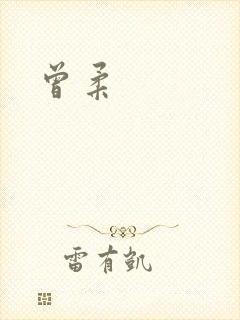 曾柔
雷有凯